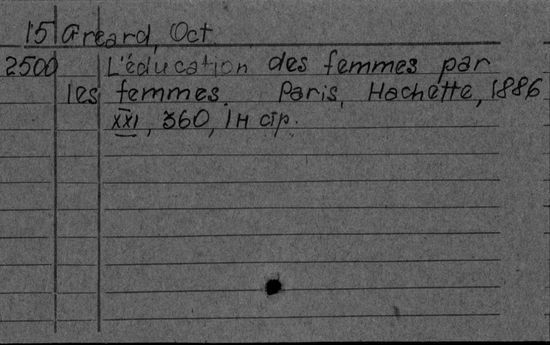 15 Greard, Oct.
2500 L'éducation des femmes par
les femmes. Paris, Hachette, 1886
XXI, 360, 1н стр.